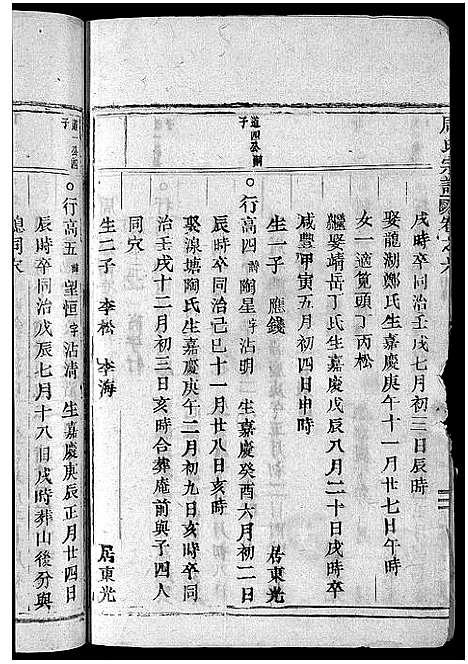 周氏宗譜卷之
戌時卒同治壬戌七月初三日辰時
娶龍湖鄭氏生嘉慶庚午十一月廿七日午時
女一適筧頭丁丙松
繼娶靖岳丁氏生嘉慶戊辰八月二十日戌時卒
咸豐甲寅五月初四日申時
生一子 應錢 居東光
道四公嗣子
○行高四諱陶星字沾明 生嘉慶癸酉六月初二日
辰時卒同治己巳十一月廿八日亥時
娶湶塘陶氏生嘉慶庚午二月初九日亥時卒同
治壬戌十二月初三日亥時合葬庵前與子四人
同穴
生二子 李松 李海 居東光
道一公四子
○行高五諱望恒字沾清 生嘉慶庚辰正月廿四日
辰時卒同治戊辰七月十八日戌時葬山後分與
同穴